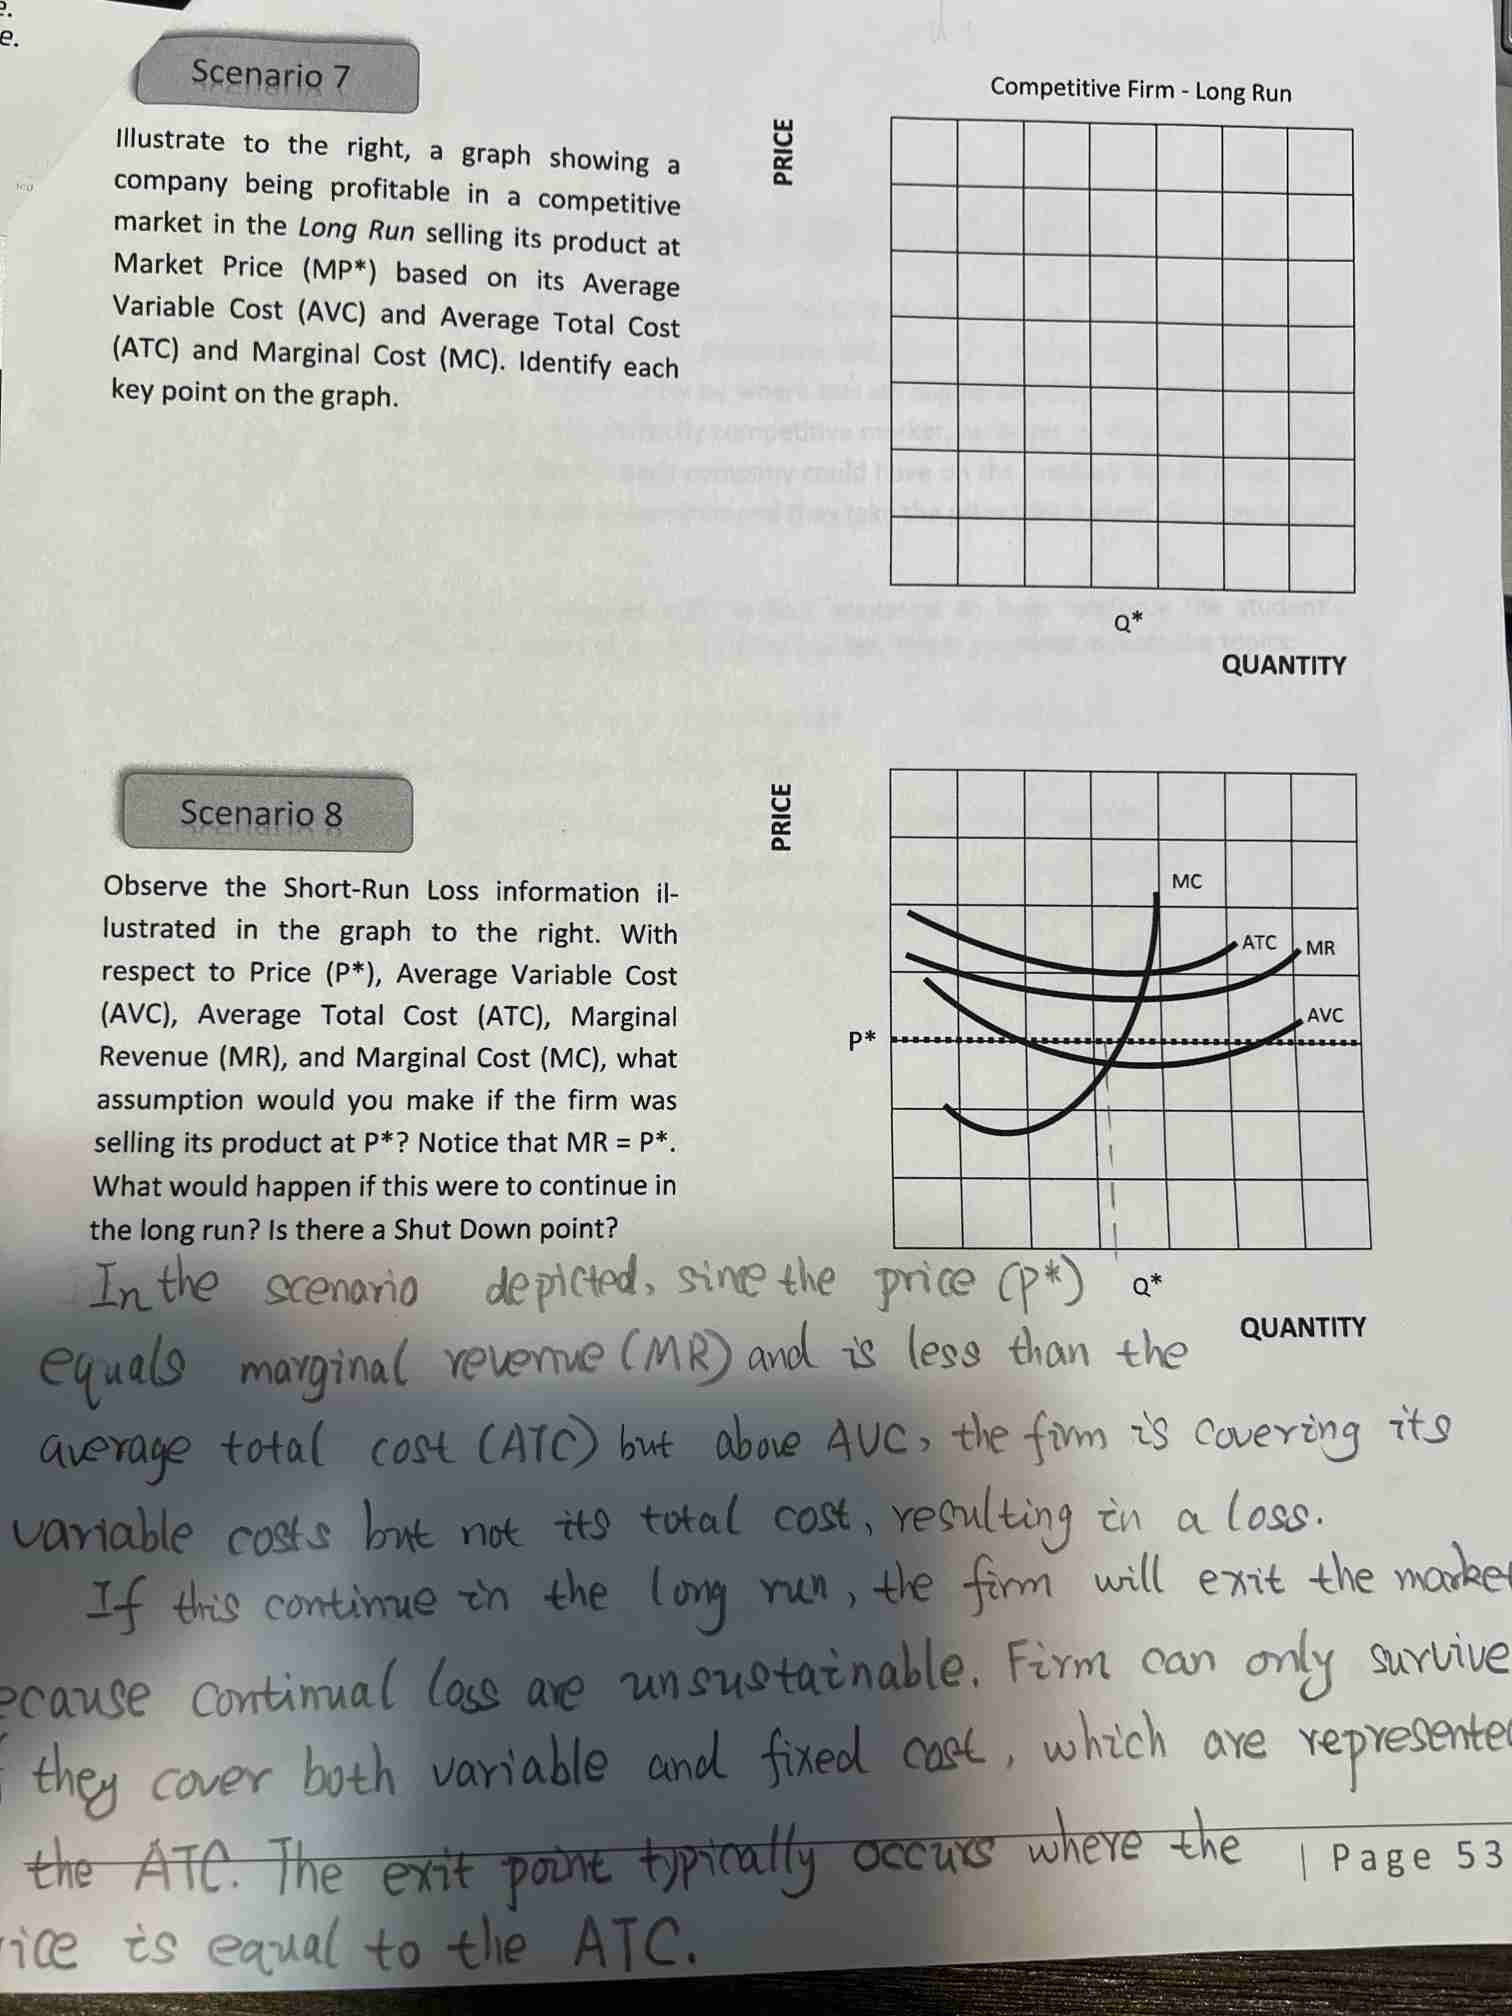 e.
Scenario 7
Illustrate to the right, a graph showing a
company being profitable in a competitive
market in the Long Run selling its product at
Market Price (MP*) based on its Average
Variable Cost (AVC) and Average Total Cost
(ATC) and Marginal Cost (MC). Identify each
key point on the graph.
Competitive Firm - Long Run
PRICE
Q*
QUANTITY
Scenario 8
Observe the Short-Run Loss information il-
lustrated in the graph to the right. With
respect to Price (P*), Average Variable Cost
(AVC), Average Total Cost (ATC), Marginal
Revenue (MR), and Marginal Cost (MC), what
assumption would you make if the firm was
selling its product at P*? Notice that MR = P*.
What would happen if this were to continue in
the long run? Is there a Shut Down point?
PRICE
MC
ATC
MR
AVC
P*
Q*
QUANTITY
In the scenario depicted, sine the price (P*)
equals marginal revenue (MR) and is less than the
average total cost (ATC) but above AVC, the firm is covering its
variable costs but not its total cost, resulting in a loss.
If this continue in the long run, the firm will exit the market
ecause continual loss are unsustainable. Firm can only survive
they cover both variable and fixed cost, which are represente
the ATC. The exit point typically occurs where the
ice is equal to the ATC.
| Page 53